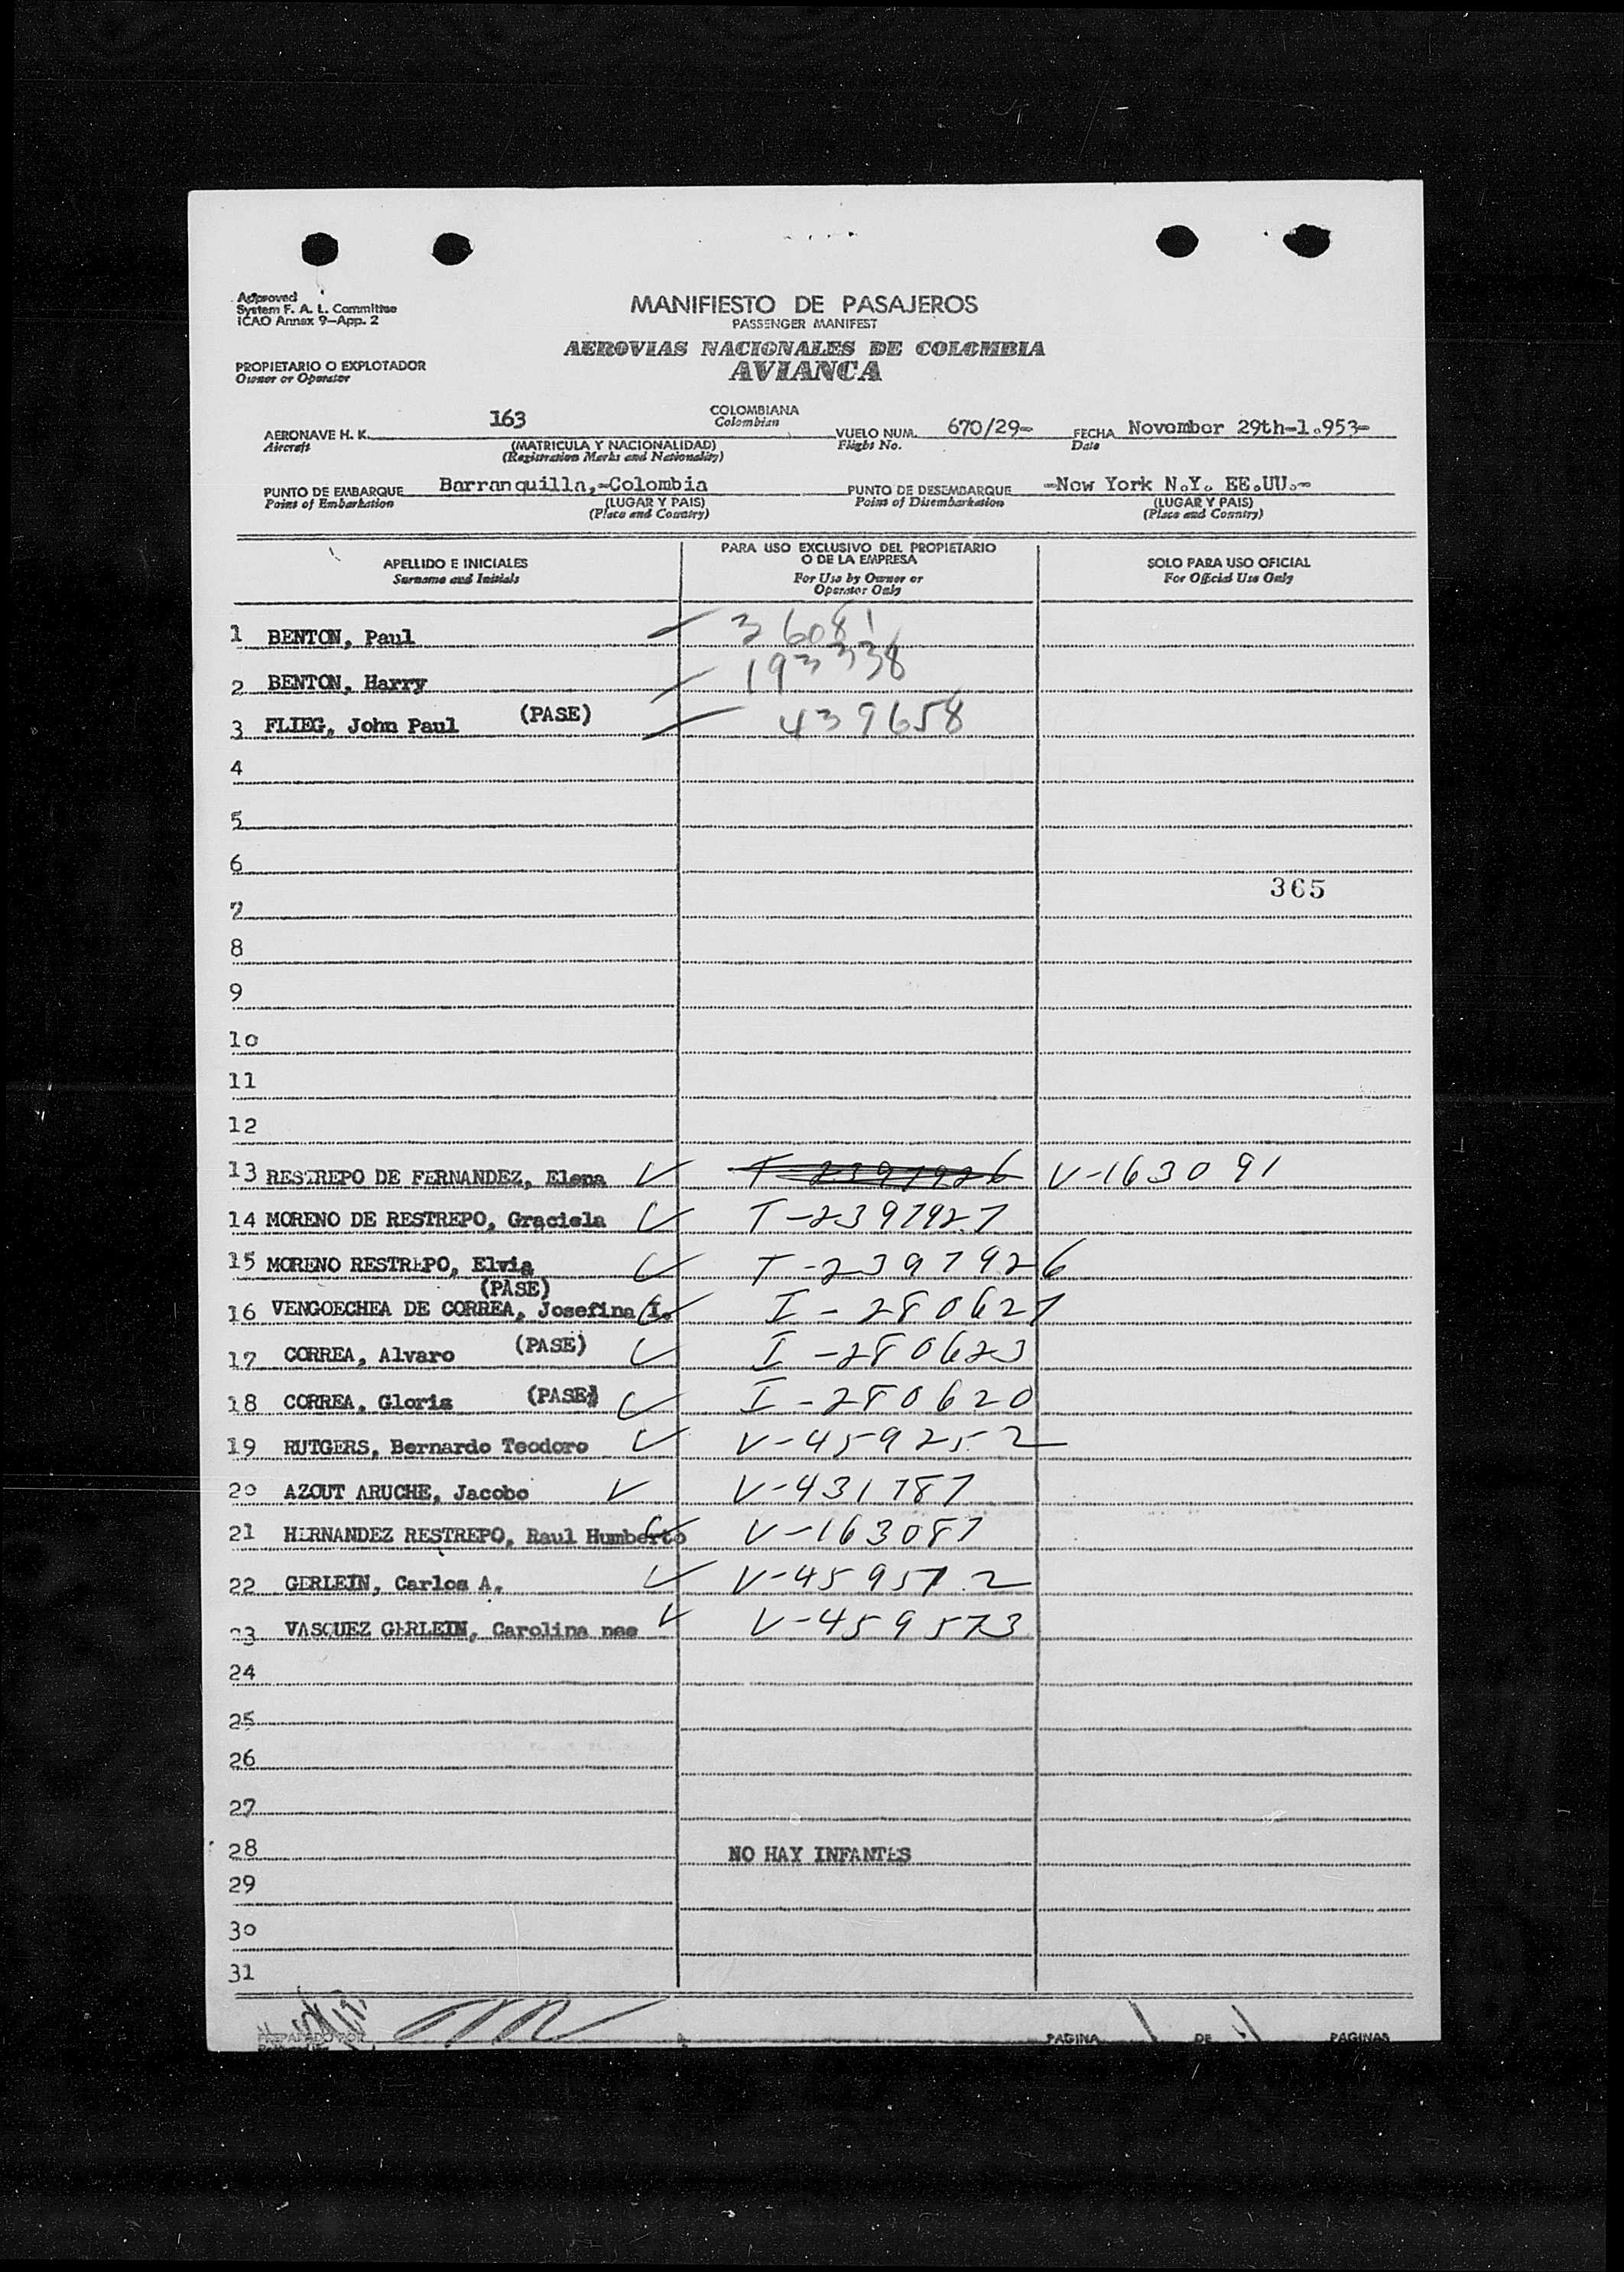 Approved
System F. A. L. Committee
ICAO Annex 9-App. 2
MANIFIESTO DE PASAJEROS
PASSENGER MANIFEST
AEROVIAS NACIONALES DE COLOMBIA
AVIANCA
PROPIETARIO O EXPLOTADOR
Owner or Operator
AERONAVE H. K. 163 COLOMBIANA VUELO NUM. 670/29- FECHA November 29th-1.953-
Aircraft Colombian Flight No. Date
(MATRICULA Y NACIONALIDAD)
(Registration Marks and Nationality)
PUNTO DE EMBARQUE Barranquilla,-Colombia PUNTO DE DESEMBARQUE -New York N.Y. EE.UU.-
Point of Embarkation (LUGAR Y PAIS) Point of Disembarkation (LUGAR Y PAIS)
(Place and Country) (Place and Country)
APELLIDO E INICIALES PARA USO EXCLUSIVO DEL PROPIETARIO O DE LA EMPRESA SOLO PARA USO OFICIAL
Surname and Initials For Use by Owner or Operator Only For Official Use Only
1 BENTON, Paul 36081
2 BENTON, Harry 193338
3 FLIEG, John Paul (PASE) 439658
4
5
6
365
7
8
9
10
11
12
13 RESTREPO DE FERNANDEZ, Elena T-2397926 V-163091
14 MORENO DE RESTREPO, Graciela T-2397927
15 MORENO RESTREPO, Elvia T-2397926
(PASE)
16 VENGOECHEA DE CORREA, Josefina I. I-280627
17 CORREA, Alvaro (PASE) I-280623
18 CORREA, Gloria (PASE) I-280620
19 RUTGERS, Bernardo Teodoro V-459252
20 AZOUT ARUCHE, Jacobo V-431787
21 HERNANDEZ RESTREPO, Raul Humberto V-163087
22 GERLEIN, Carlos A. V-459572
23 VASQUEZ GERLEIN, Carolina nee V-459573
24
25
26
27
28 NO HAY INFANTES
29
30
31
PREPARADO POR PAGINA 1 DE 1 PAGINAS